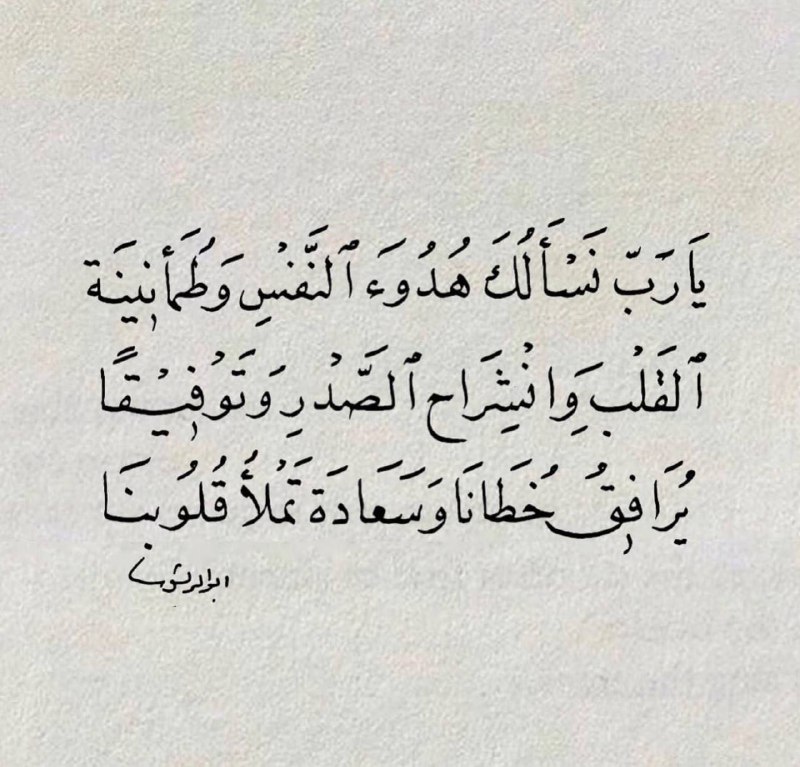 يَارَبّ نَسْأَلُكَ هُدُوَءَ ٱلنَّفْسِ وَطُمَأنِينَة
ٱلقَلْبَ وِانْشِرَاح ٱلصَّدْرِ وَتَوْفِيْقًا
يُرَافِقُ خُطَانَا وَسَعَادَة تَمْلأُ قُلُوبنَا